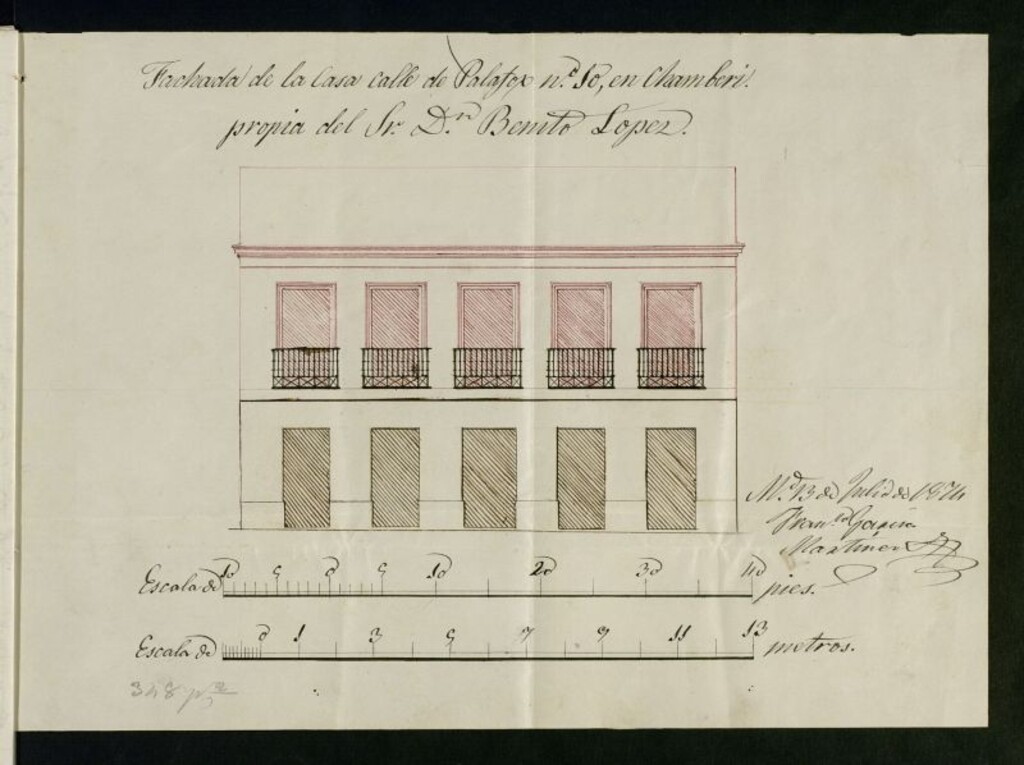 Fachada de la Casa calle de Palafox nº 10, en Chamberi.
propia del Sr. Dn. Benito Lopez.
Md. 13 de Julio de 1874
Franco Garcia
Martinez
Escala de 10 5 0 5 10 20 30 40 pies.
Escala de 0 1 3 5 7 9 11 13 metros.
348